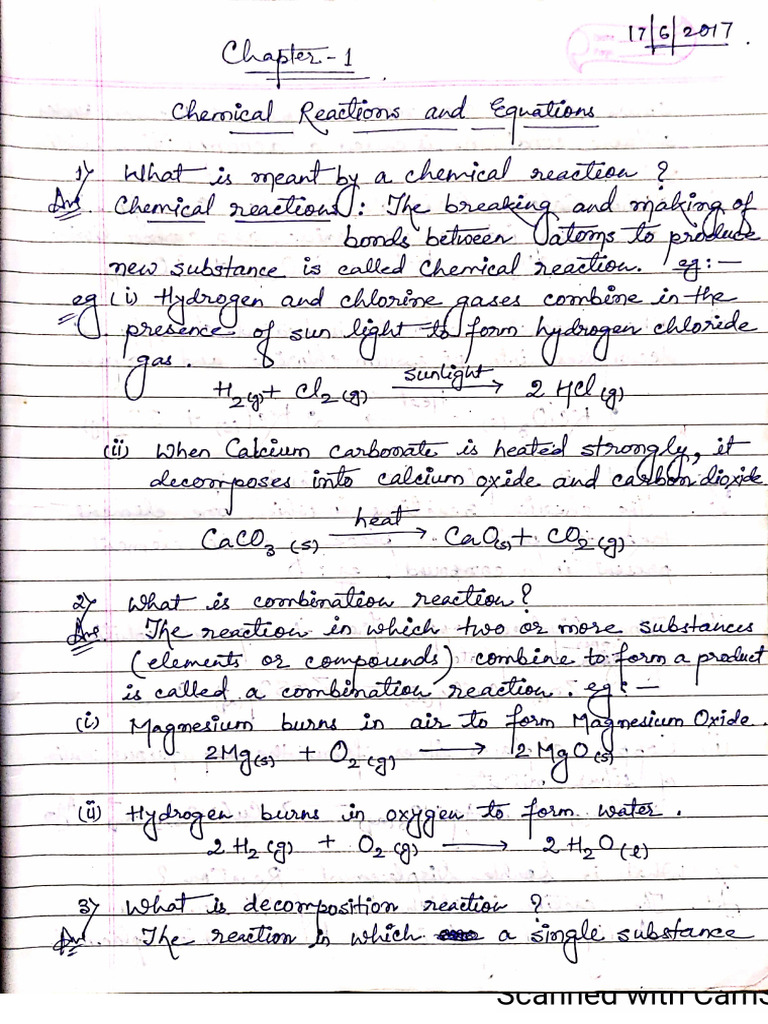 17/6/2017.
Chapter-1
Chemical Reactions and Equations
1) What is meant by a chemical reaction?
Ans. Chemical reactions: The breaking and making of
bonds between atoms to produce
new substance is called Chemical reaction. eg:—
eg (i) Hydrogen and chlorine gases combine in the
presence of sun light to form hydrogen chloride
gas.
H₂(g) + Cl₂(g) sunlight → 2 HCl(g)
(ii) When Calcium carbonate is heated strongly, it
decomposes into calcium oxide and carbon dioxide
CaCO₃(s) heat → CaO(s) + CO₂(g)
2) What is combination reaction?
Ans. The reaction in which two or more substances
(elements or compounds) combine to form a product
is called a combination reaction. eg:—
(i) Magnesium burns in air to form Magnesium Oxide.
2Mg(s) + O₂(g) → 2MgO(s)
(ii) Hydrogen burns in oxygen to form water.
2 H₂(g) + O₂(g) → 2 H₂O(l)
3) What is decomposition reaction?
Ans. The reaction in which a single substance
Scanned with CamS